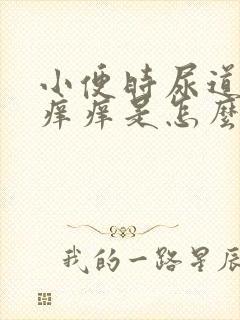 小便时尿道
痒痒是怎麼
我的一路星辰